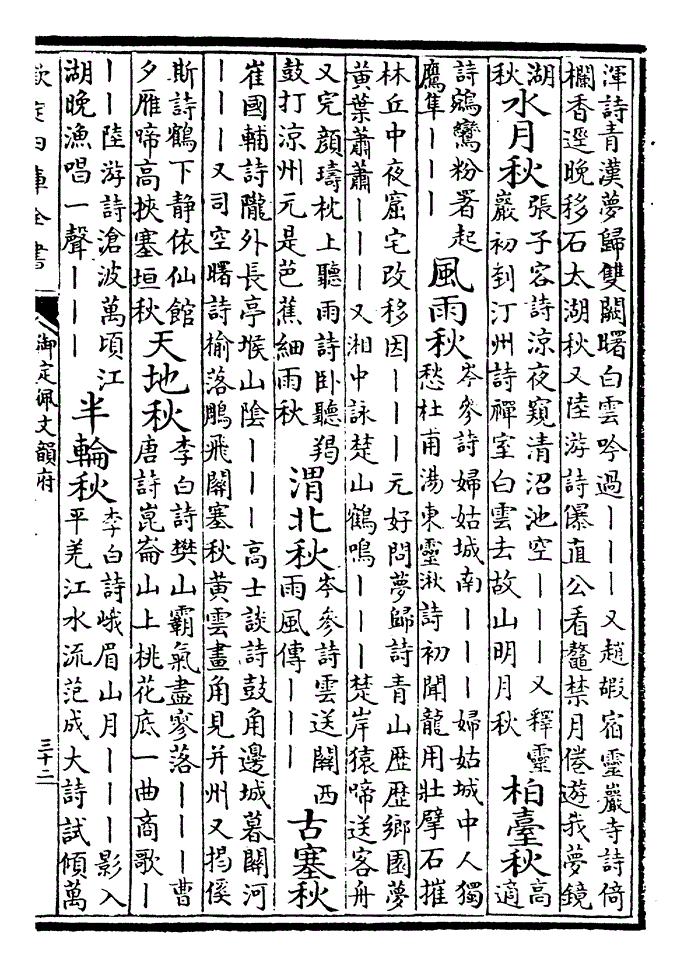 渾詩青漢夢歸雙闕曙白雲吟過丨丨丨又趙嘏宿靈巖寺詩倚
欄香逕晚移石太湖秋又陸游詩瀑直公看鼇禁月倦遊我夢鏡
湖
秋
水月秋
張子容詩涼夜窺清沼池空丨丨丨又釋靈
巖初到汀州詩禪室白雲去故山明月秋
柏臺秋
高
適
詩鵷鸞粉署起
鷹隼丨丨丨
風雨秋
岑參詩婦姑城南丨丨丨婦姑城中人獨
愁杜甫湯東靈湫詩初聞龍用壯擘石摧
林丘中夜窟宅改移因丨丨丨元好問夢歸詩青山歷歷鄉園夢
黃葉蕭蕭丨丨丨又湘中詠楚山鶴鳴丨丨丨楚岸猿啼送客舟
又完顏璹枕上聽雨詩卧聽羯
鼓打涼州元是芭蕉細雨秋
渭北秋
岑參詩雲送關西
雨風傳丨丨丨
古塞秋
崔國輔詩隴外長亭堠山陰丨丨丨高士談詩鼓角邊城暮關河
丨丨丨又司空曙詩榆落鵰飛關塞秋黃雲畫角見并州又揭傒
斯詩鶴下靜依仙館
夕雁啼高挾塞垣秋
天地秋
李白詩樊山霸氣盡寥落丨丨丨曹
唐詩崑崙山上桃花底一曲商歌丨
丨丨陸游詩滄波萬頃江
湖晚漁唱一聲丨丨丨
半輪秋
李白詩峨眉山月丨丨丨影入
平羌江水流范成大詩試傾萬
欽定四庫全書
御定佩文韻府
三十二